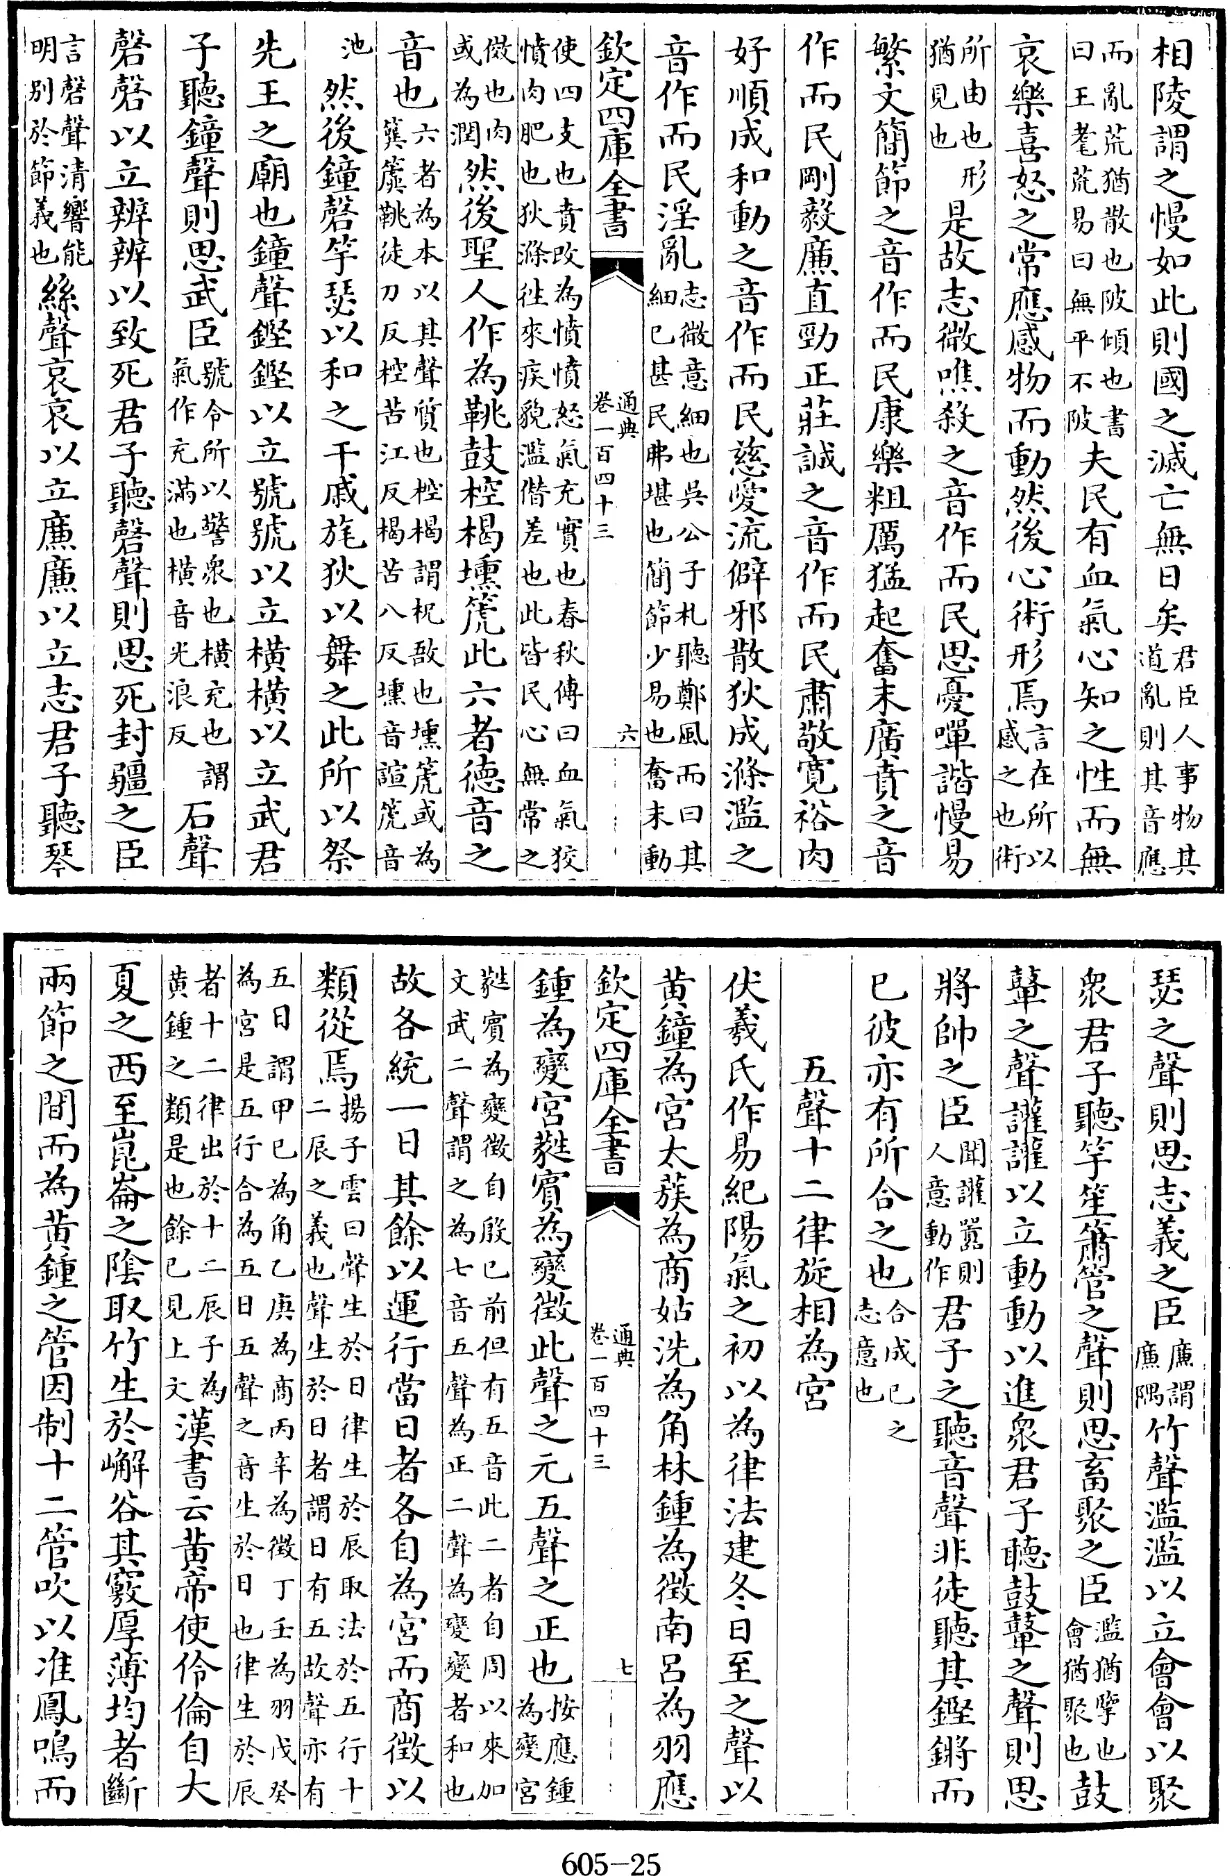 相陵謂之慢如此則國之滅亡無日矣君臣人事物其道亂則其音應
而亂荒猶散也陂傾也書曰王耄荒易曰無平不陂夫民有血氣心知之性而無
哀樂喜怒之常應感物而動然後心術形焉言在所以感之也術
所由也形猶見也是故志微噍殺之音作而民思憂嘽諧慢易
繁文簡節之音作而民康樂粗厲猛起奮末廣賁之音
作而民剛毅廉直勁正莊誠之音作而民肅敬寛裕肉
好順成和動之音作而民慈愛流僻邪散狄成滌濫之
音作而民淫亂志微意細也吳公子札聽鄭風而曰其細已甚民弗堪也簡節少易也奮末動
欽定四庫全書 通典卷一百四十三 六
使四支也賁改為憤憤怒氣充實也春秋傳曰血氣狡憤肉肥也狄滌徃來疾貌濫僭差也此皆民心無常之
傚也肉或為潤然後聖人作為鞉鼓椌楬壎箎此六者德音之
音也六者為本以其聲質也椌楬謂柷敔也壎箎或為簨簴鞉徒刀反椌苦江反楬苦八反壎音諠箎音
池然後鐘磬竽瑟以和之干戚旄狄以舞之此所以祭
先王之廟也鐘聲鏗鏗以立號號以立橫橫以立武君
子聽鐘聲則思武臣號令所以警衆也橫充也謂氣作充滿也橫音光浪反石聲
磬磬以立辨辨以致死君子聽磬聲則思死封疆之臣
言磬聲清響能明别於節義也絲聲哀哀以立廉廉以立志君子聽琴
瑟之聲則思志義之臣廉謂廉隅竹聲濫濫以立會會以聚
衆君子聽竽笙簫管之聲則思畜聚之臣濫猶擥也會猶聚也鼓
鼙之聲讙讙以立動動以進衆君子聽鼓鼙之聲則思
將帥之臣聞讙嚻則人意動作君子之聽音聲非徒聽其鏗鏘而
已彼亦有所合之也合成已之志意也
五聲十二律旋相為宮
伏羲氏作易紀陽氣之初以為律法建冬日至之聲以
黄鐘為宮太蔟為商姑洗為角林鍾為徵南呂為羽應
欽定四庫全書 通典卷一百四十三 七
鍾為變宮蕤賓為變徵此聲之元五聲之正也按應鍾為變宮
蕤賓為變徵自殷已前但有五音此二者自周以來加文武二聲謂之為七音五聲為正二聲為變變者和也
故各統一日其餘以運行當日者各自為宮而商徵以
類從焉揚子雲曰聲生於日律生於辰取法於五行十二辰之義也聲生於日者謂日有五故聲亦有
五日謂甲巳為角乙庚為商丙辛為徵丁壬為羽戊癸為宮是五行合為五日五聲之音生於日也律生於辰
者十二律出於十二辰子為黄鍾之類是也餘已見上文漢書云黄帝使伶倫自大
夏之西至崑崙之陰取竹生於嶰谷其竅厚薄均者斷
兩節之間而為黄鍾之管因制十二管吹以准鳳鳴而
605-25